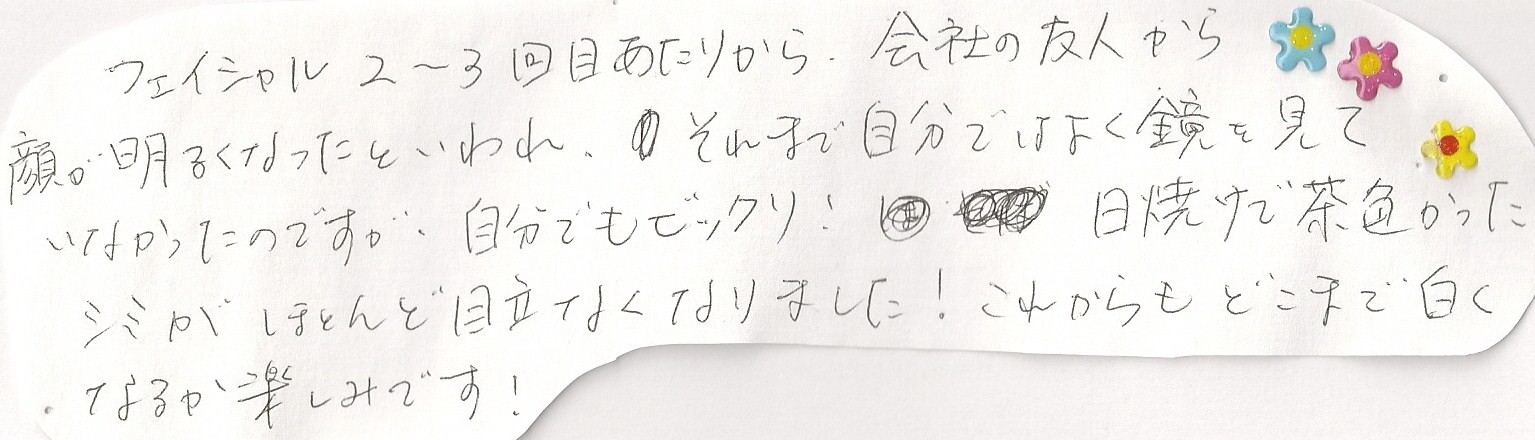 フェイシャル 2〜3回目あたりから、会社の友人から
顔が明るくなったといわれ、それまで自分ではよく鏡を見て
いなかったのですが、自分でもビックリ! 日焼けで茶色かった
シミがほとんど目立なくなりました!これからもどこまで白く
なるか楽しみです!